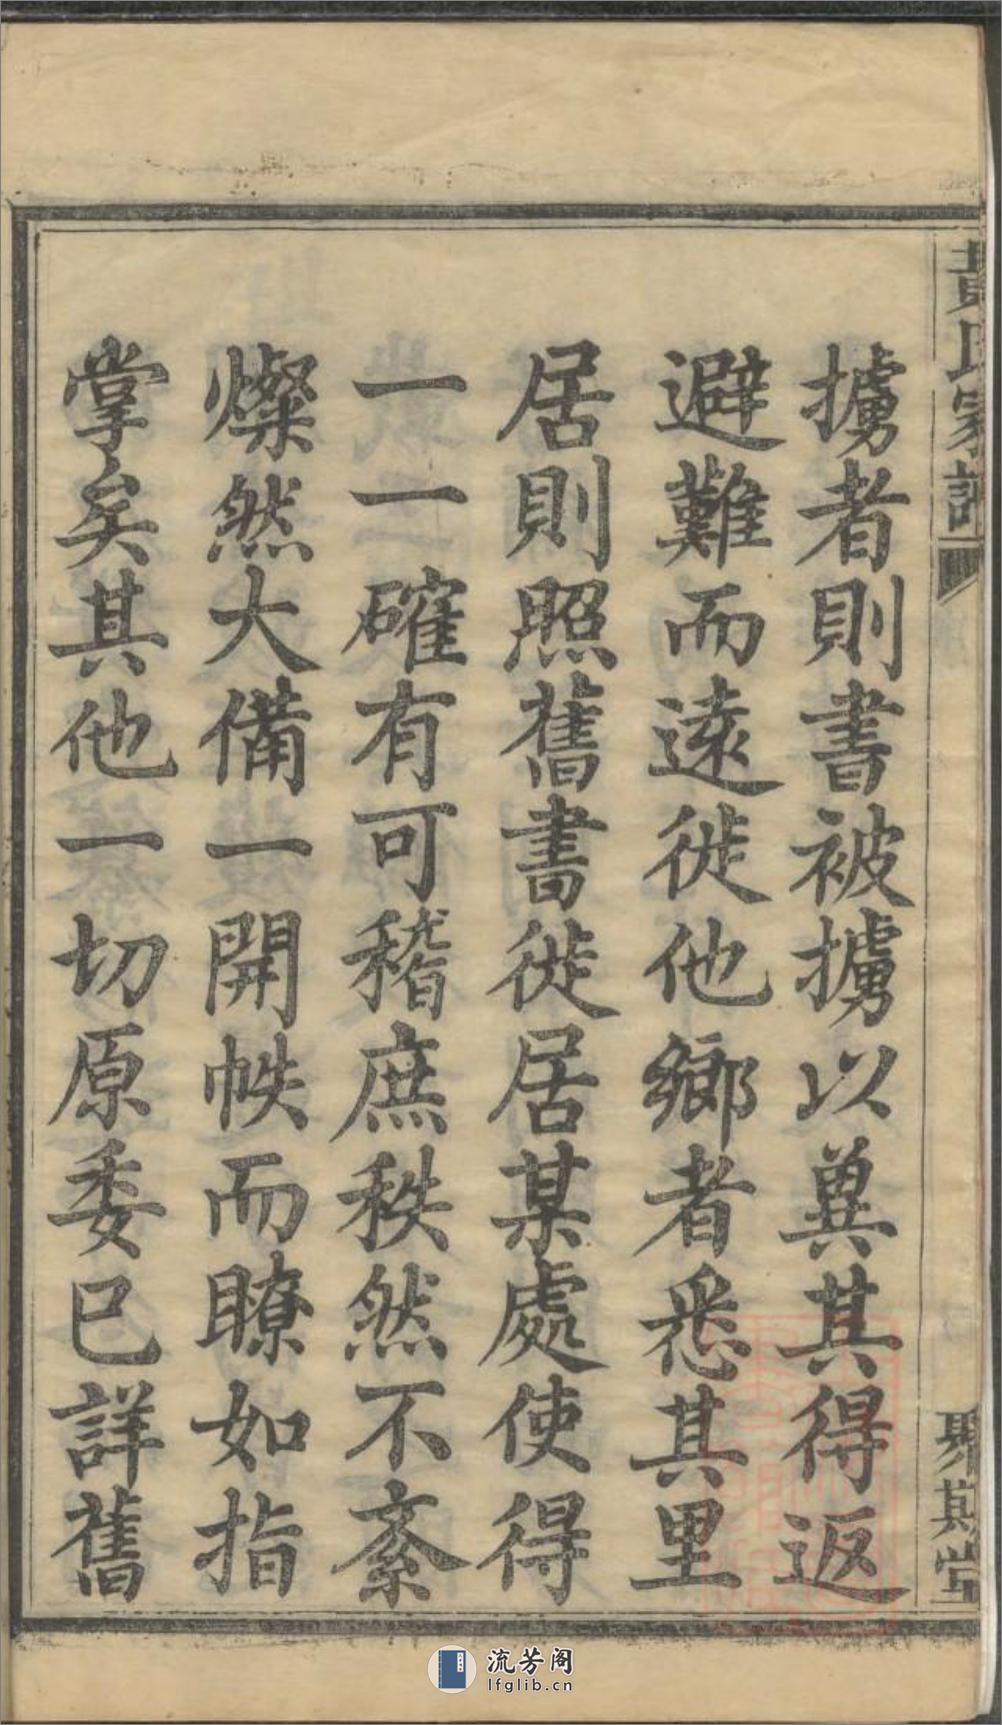 黃氏家譜
擄者則書被擄以冀其得返
避難而遠徙他鄉者悉其里
居則照舊書徙居某處使得
一一確有可稽庶秩然不紊
燦然大備一開帙而瞭如指
掌矣其他一切原委已詳舊
堂
流芳阁
lfglib.cn